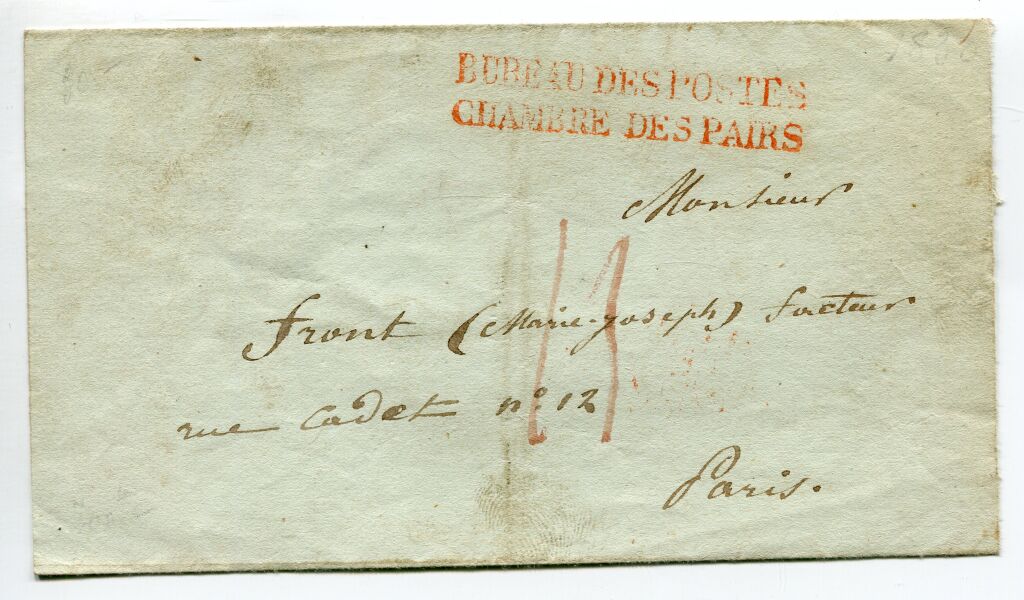 BUREAU DES POSTES
CHAMBRE DES PAIRS
Monsieur
front (Marie-joseph) facteur
rue Cadet n.° 12
Paris.